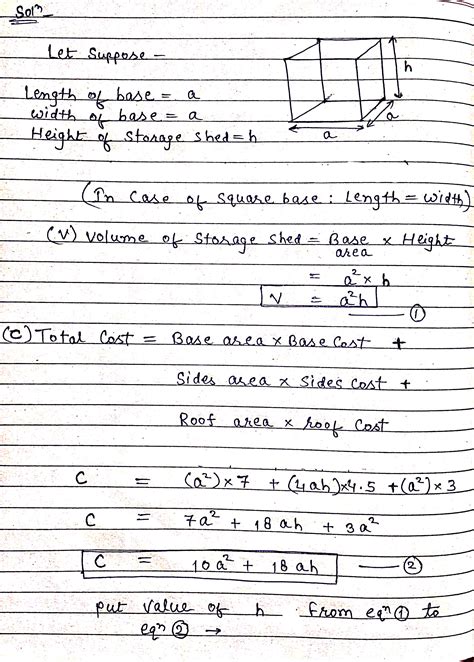 Solⁿ
Let Suppose -
h
Length of base = a
width of base = a
a
Height of Storage Shed = h
a
(In Case of Square base : Length = width)
(V) Volume of Storage Shed = Base area × Height
= a² × h
V = a²h
①
(C) Total Cost = Base area × Base Cost +
Sides area × Sides Cost +
Roof area × roof Cost
C = (a²)×7 + (4ah)×4.5 + (a²)×3
C = 7a² + 18ah + 3a²
C = 10a² + 18ah
②
put value of h from eqⁿ ① to
eqⁿ ② →